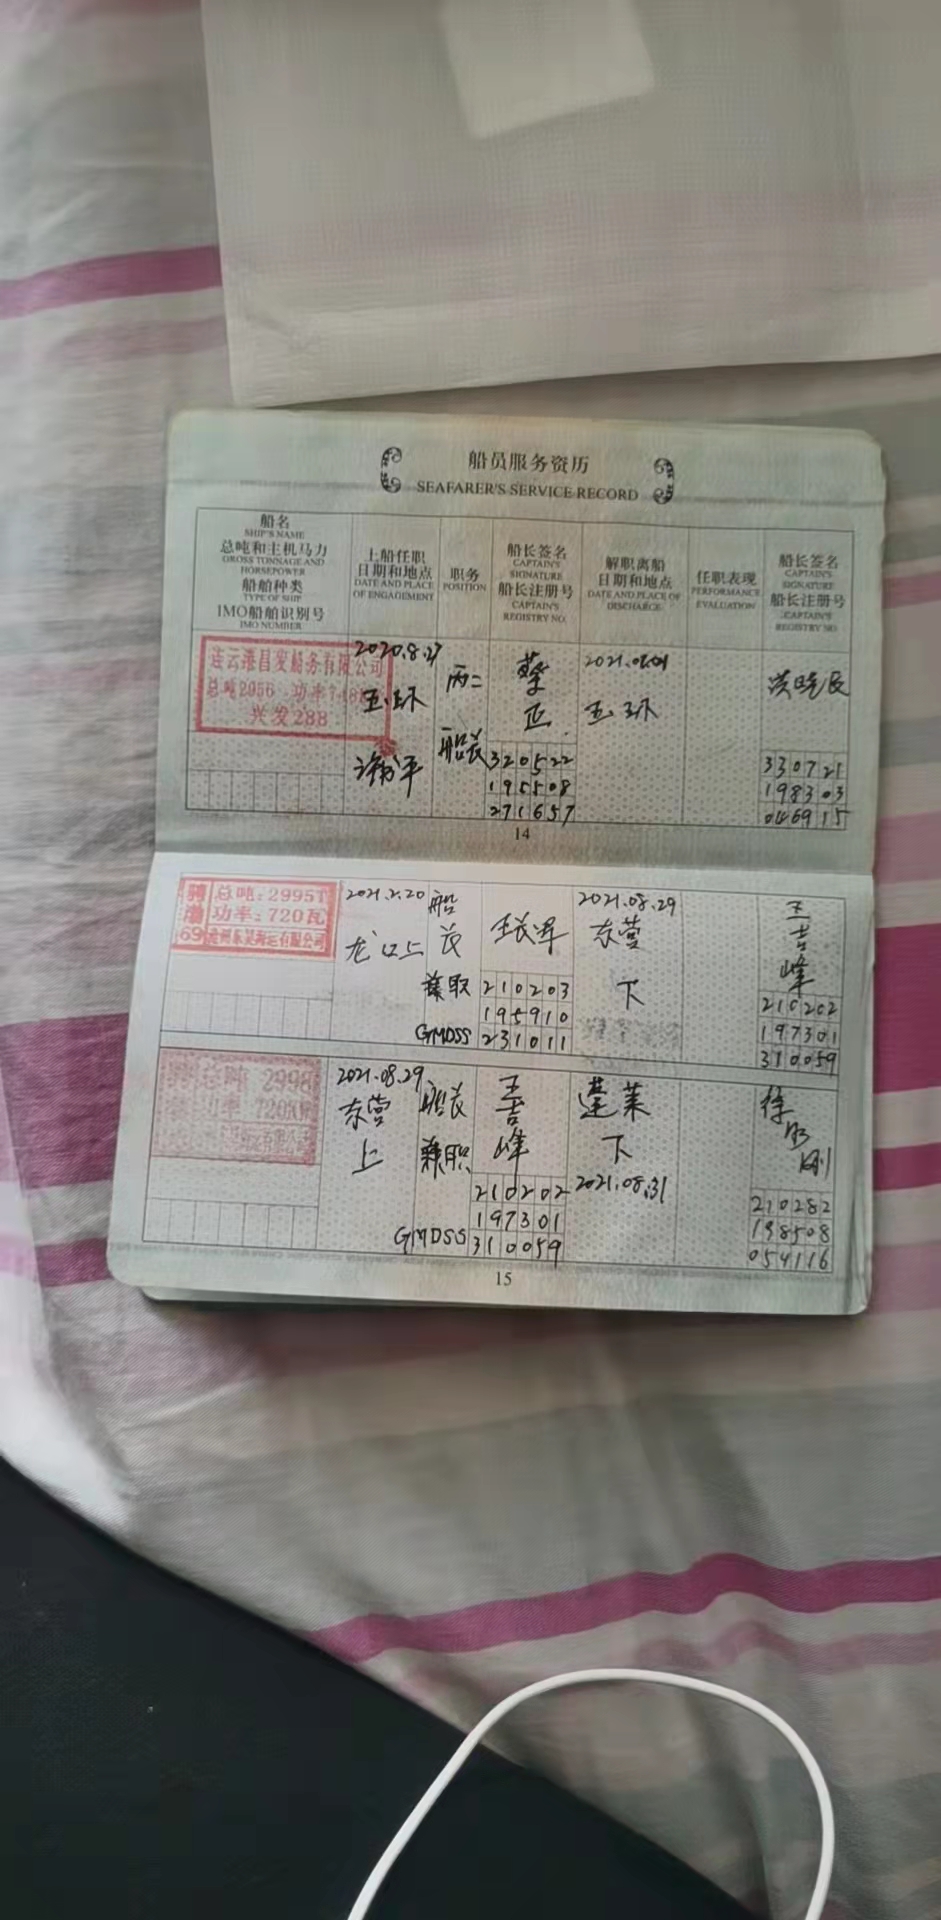 船员服务资历
SEAFARER'S SERVICE RECORD
船名
SHIP'S NAME
总吨和主机马力
GROSS TONNAGE AND
HORSEPOWER
船舶种类
TYPE OF SHIP
IMO船舶识别号
IMO NUMBER
上船任职
日期和地点
DATE AND PLACE
OF ENGAGEMENT
职务
POSITION
船长签名
CAPTAIN'S
SIGNATURE
船长注册号
CAPTAIN'S
REGISTRY NO.
解职离船
日期和地点
DATE AND PLACE OF
DISCHARGE
任职表现
PERFORMANCE
EVALUATION
船长签名
CAPTAIN'S
SIGNATURE
船长注册号
CAPTAIN'S
REGISTRY NO
连云港昌发船务有限公司
总吨2956 功率
兴发288
2020.8.27
丙二
船长
320522
195508
271657
330721
198303
046915
14
总吨:2995T
功率:720瓦
69
海运有限公司
2021.2.20
龙口上
船长
兼职
GMDSS
210203
195910
231011
2021.08.29
东营
下
王吉峰
210202
197301
310059
总吨 2998
功率 720
2021.08.29
东营
上
船长
兼职
GMDSS
王吉峰
210202
197301
310059
蓬莱
下
2021.08.31
210282
198508
054116
15